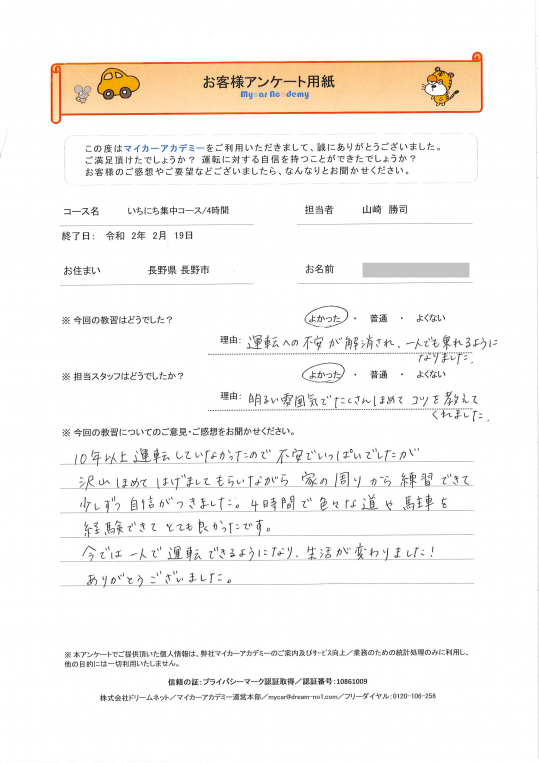 お客様アンケート用紙
Mycar Academy
この度はマイカーアカデミーをご利用いただきまして、誠にありがとうございました。
ご満足頂けたでしょうか？ 運転に対する自信を持つことができたでしょうか？
お客様のご感想やご要望などございましたら、なんなりとお聞かせください。
コース名 いちにち集中コース/4時間 担当者 山崎 勝司
終了日： 令和 2年 2月 19日
お住まい 長野県 長野市 お名前
※ 今回の教習はどうでした？ よかった ・ 普通 ・ よくない
理由： 運転への不安が解消され、一人でも乗れるように
なりました。
※ 担当スタッフはどうでしたか？ よかった ・ 普通 ・ よくない
理由： 明るい雰囲気でたくさんほめて コツを教えて
くれました。
※ 今回の教習についてのご意見・ご感想をお聞かせください。
10年以上運転していなかったので不安でいっぱいでしたが
沢山ほめてはげましてもらいながら 家の周りから練習できて
少しずつ自信がつきました。4時間で色々な道や駐車を
経験できてとても良かったです。
今では一人で運転できるようになり、生活が変わりました！
ありがとうございました。
※ 本アンケートでご提供頂いた個人情報は、弊社マイカーアカデミーのご案内及びサービス向上／業務のための統計処理のみに利用し、
他の目的には一切利用いたしません。
信頼の証：プライバシーマーク認証取得／認証番号：10861009
株式会社ドリームネット／マイカーアカデミー運営本部／mycar@dream-no1.com／フリーダイヤル：0120-106-256